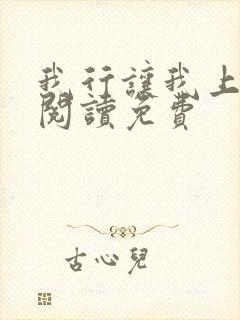 我行讓我上
閱讀免費
古心兒